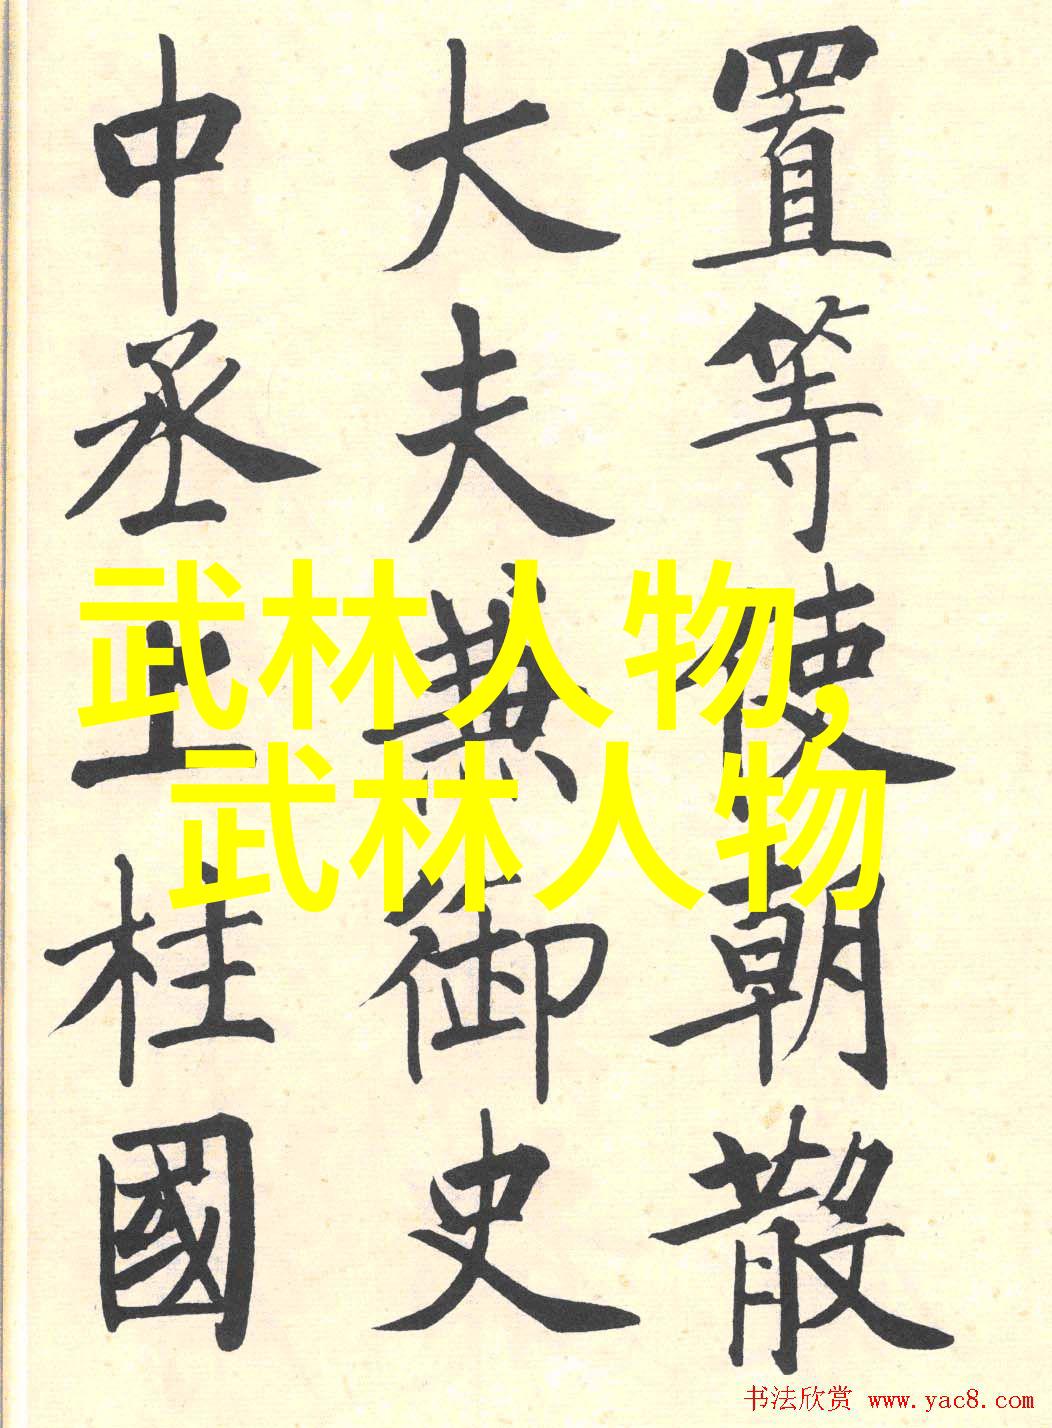 置等使朝散
大夫兼御史
中丞上柱國
武林人物,
武林人物
书法欣赏 www.yac8.com